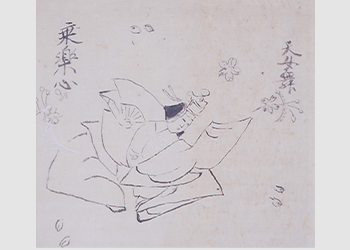 天女舞
乗楽心